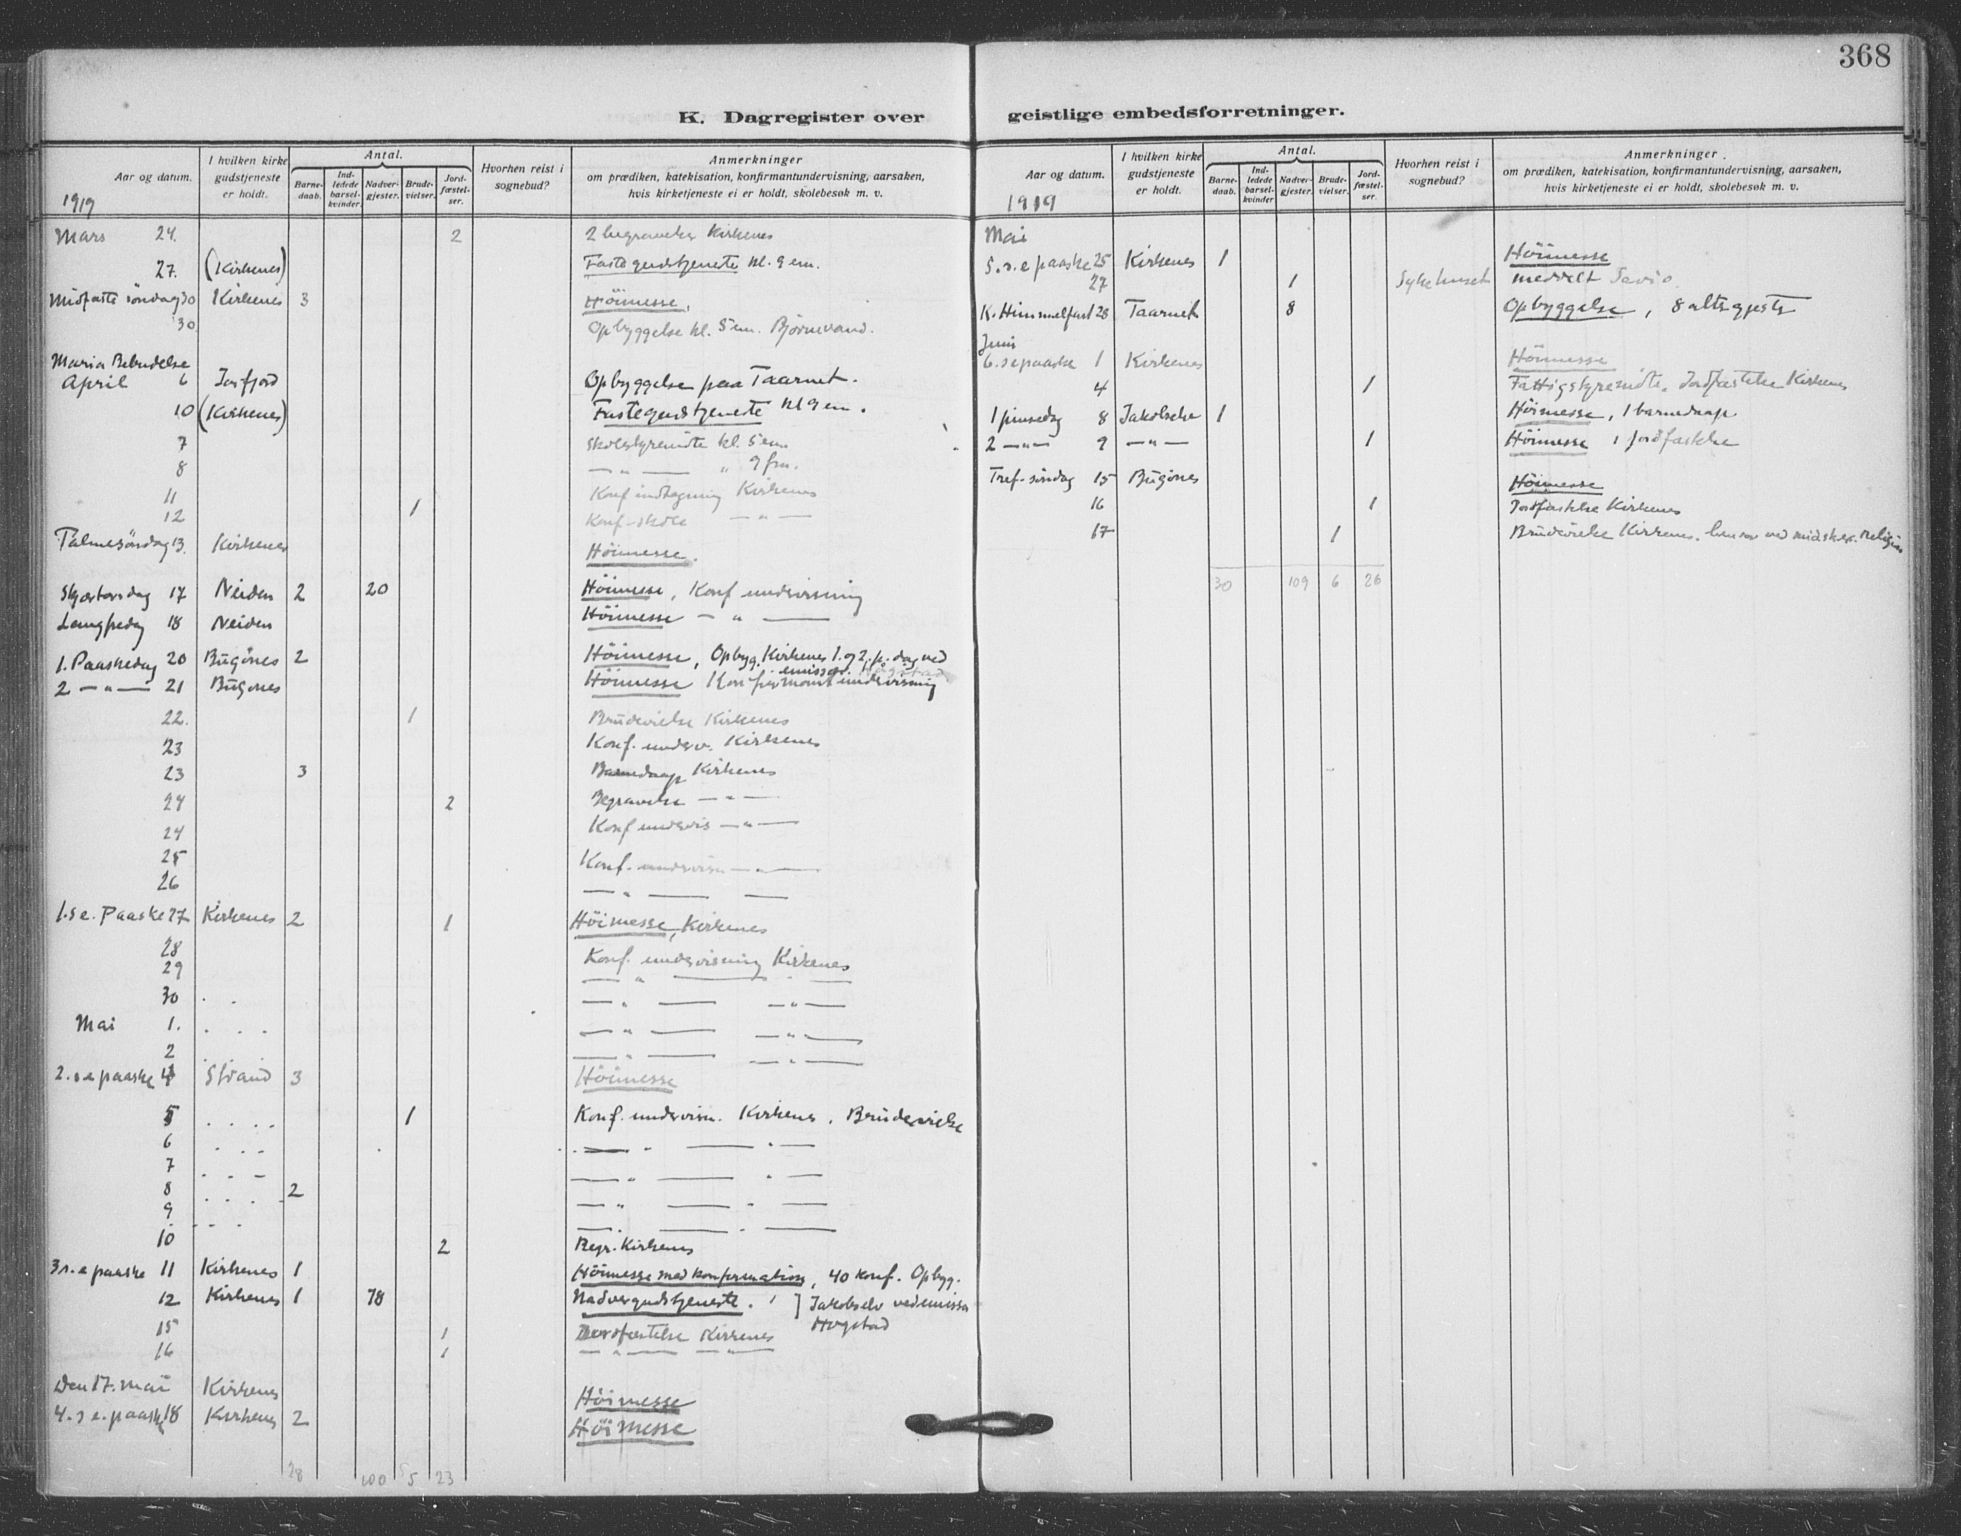 368
K. Dagregister over
Aar og datum.
I hvilken kirke gudstjeneste er holdt.
Antal.
Barne-daab.
Ind-ledede barsel-kvinder.
Nadver-gjester.
Brude-vielser.
Jord-fæstel-ser.
Hvorhen reist i sognebud?
Anmerkninger
om prædiken, katekisation, konfirmantundervisning, aarsaken,
hvis kirketjeneste ei er holdt, skolebesøk m. v.
1919
Mars 24. 2 2 begravelser Kirkenes
27. (Kirkenes) Fastegudstjeneste kl. 9 em.
Midfaste söndag 30 Kirkenes 3 Höimesse.
30 Opbyggelse kl. 5 em. Bjørnevand.
Maria Bebudelse
April 6 Jarfjord Opbyggelse paa Taarnet.
10 (Kirkenes) Fastegudstjeneste kl 9 em.
7 Skolestyremöte kl. 5 em.
8 — " — " 9 fm.
11 Konf indtagning Kirkenes
12 1 Konf-skole — " —
Palmesöndag 13. Kirkenes Höimesse.
Skjærtorsdag 17 Neiden 2 20 Höimesse, Konf undervisning
Langfredag 18 Neiden Höimesse — " —
1. Paaskedag 20 Bugönes 2 Höimesse, Opbyg. Kirkenes 1. og 2. p. dag ved
emissær
2 — " — 21 Bugönes Höimesse Konfirmantundervisning
22. 1 Brudevielse Kirkenes
23 Konf. underv. Kirkenes
23 3 Barnedaap Kirkenes
24 2 Begravelse — " —
24 Konf undervis — " —
25 Konf. undervisn — " —
26 — " — —
1. s e. Paaske 27 Kirkenes 2 1 Höimesse, Kirkenes
28 Konf. undervisning Kirkenes
29 — " — —
30 — " — — " —
Mai 1. — " — — " —
2 — " — — " —
2. s e paaske 4 Strand 3 Höimesse
5 1 Konf. undervisn. Kirkenes. Brudevielse
6 — " — " —
7 — " — " —
8 2 — " — " —
9 — " — " —
10 2 Begr. Kirkenes
3 s. e paaske 11 Kirkenes 1 Höimesse med konfirmation, 40 konf. Opbyg.
12 Kirkenes 1 78 Nadvergudstjeneste. } Jakobselv ved emissær
Hogstad
15 1 Jordfæstelse Kirkenes
16 1 — " — — " —
Den 17. mai Kirkenes Höimesse
4. s e. paaske 18 Kirkenes 2 Höimesse
28 100 5 23
geistlige embedsforretninger.
Aar og datum.
I hvilken kirke gudstjeneste er holdt.
Antal.
Barne-daab.
Ind-ledede barsel-kvinder
Nadver-gjester.
Brude-vielser.
Jord-fæstel-ser.
Hvorhen reist i sognebud?
Anmerkninger.
om prædiken, katekisation, konfirmantundervisning, aarsaken,
hvis kirketjeneste ei er holdt, skolebesøk m. v.
1919
Mai
5. s. e paaske 25 Kirkenes 1 Höimesse
27 1 Sykehuset meddelt Savio
K. Himmelfart 28 Taarnet 8 Opbyggelse, 8 altergjester
Juni
6. s e paaske 1 Kirkenes Höimesse
4 1 Fattigstyremöte. Jordfæstelse Kirkenes
1 pinsedag 8 Jakobselv 1 Höimesse, 1 barnedaap
2 — " — 9 — " — 1 Höimesse 1 jordfæstelse
Tref. söndag 15 Bugönes Höimesse
16 1 Jordfæstelse Kirkenes
17 1 Brudevielse Kirkenes. ved
30 109 6 26